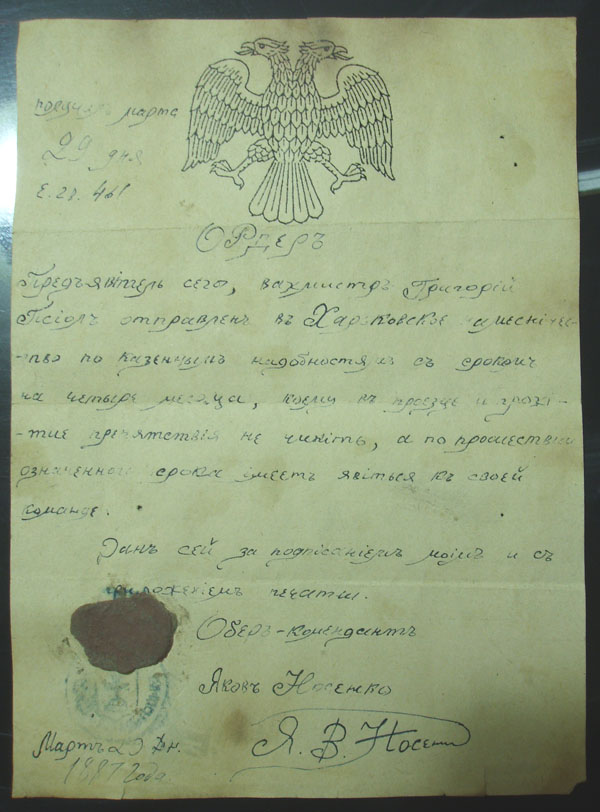 марта
29 дня
ОРДЕРЪ
Предъявiтель сего, вахмистръ Григорiй
Псiолъ отправленъ въ Харьковское намеснiчес-
-тво по казеннымъ надобностямъ съ срокомъ
на четыре месяца, коему въ проезде и прожi-
-тие препятствия не чинiть, а по прошествии
означенного срока iмеетъ явiться къ своей
команде.
Данъ сей за подпiсанiемъ моiмъ и съ
приложенiемъ печати.
Оберъ-комендантъ
Яковъ Носенко
Я. В. Носенко
Мартъ 29 Дн.
1887 года